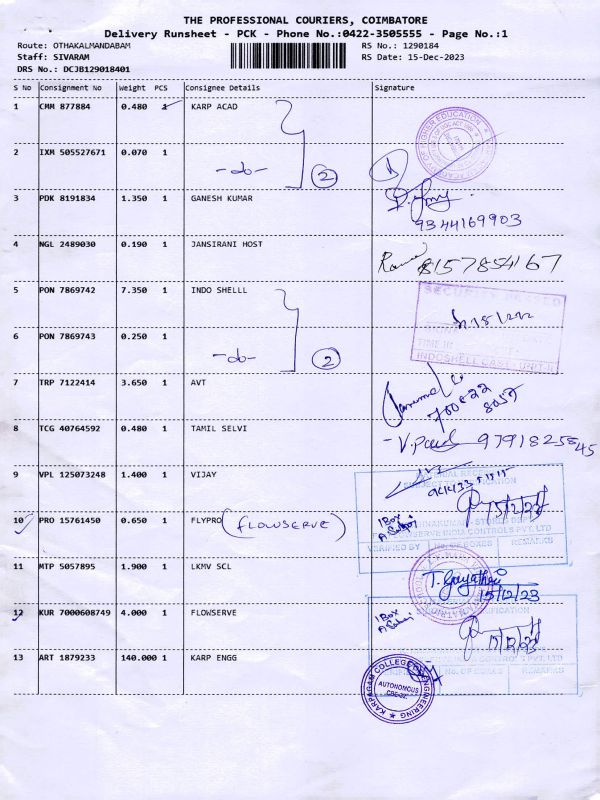 THE PROFESSIONAL COURIERS, COIMBATORE
Delivery Runsheet - PCK - Phone No.:0422-3505555 - Page No.:1
Route: OTHAKALMANDABAM RS No.: 1290184
Staff: SIVARAM RS Date: 15-Dec-2023
DRS No.: DCJB129018401
S No Consignment No Weight PCS Consignee Details Signature
1 CMM 877884 0.480 1 KARP ACAD
2 IXM 505527671 0.070 1 -do- 2
3 PDK 8191834 1.350 1 GANESH KUMAR
9344169903
4 NGL 2489030 0.190 1 JANSIRANI HOST 8157854167
5 PON 7869742 7.350 1 INDO SHELLL
6 PON 7869743 0.250 1 -do- 2
7 TRP 7122414 3.650 1 AVT
8 TCG 40764592 0.480 1 TAMIL SELVI
9791825845
9 VPL 125073248 1.400 1 VIJAY
15/12/23
10 PRO 15761450 0.650 1 FLYPRO (FLOWSERVE)
1 Box
VERIFIED BY No. OF BOXES REMARKS
11 MTP 5057895 1.900 1 LKMV SCL
T. Gayathri
15/12/23
12 KUR 7000608749 4.000 1 FLOWSERVE
1 Box
15/12/23
13 ART 1879233 140.000 1 KARP ENGG
KARPAGAM COLLEGE OF ENGINEERING
AUTONOMOUS